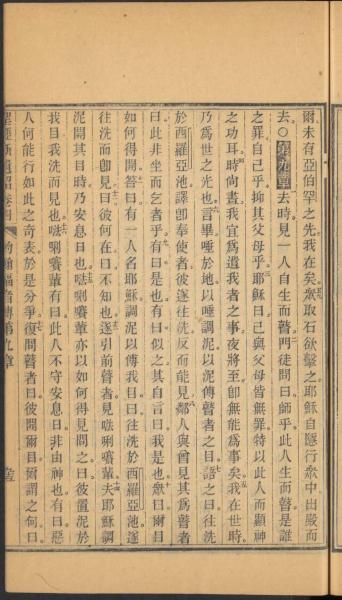 爾未有亞伯罕之先我在矣衆取石欲擊之耶穌自隱行衆中出殿而
去○第九章去時見一人自生而瞽門徒問曰師乎此人生而瞽是誰
之罪自己乎抑其父母乎耶穌曰己與父母皆無罪特以此人而顯神
之功耳時尚晝我宜爲遣我者之事夜將至卽無能爲事矣我在世時
乃爲世之光也言畢唾於地以唾調泥以泥傅瞽者之目語之曰往洗
於西羅亞池譯卽奉使者彼遂往洗反而能見鄰人與曾見其爲瞽者
曰此非坐而乞者乎有曰是也有曰似之其自言曰我是也衆曰爾目
如何得開答曰有一人名耶穌調泥以傅我目曰往洗於西羅亞池遂
往洗而卽見曰彼何在曰不知也遂引前瞽者見𠵽唎嘪輩夫耶穌調
泥開其目時乃安息日也𠵽唎嘪輩亦以如何得見問之曰彼置泥於
我目我洗而見也𠵽唎嘪輩有曰此人不守安息日非由神也有曰惡
人何能行如此之奇表於是分爭復問瞽者曰彼開爾目爾謂之何曰
約翰福音傳第九章